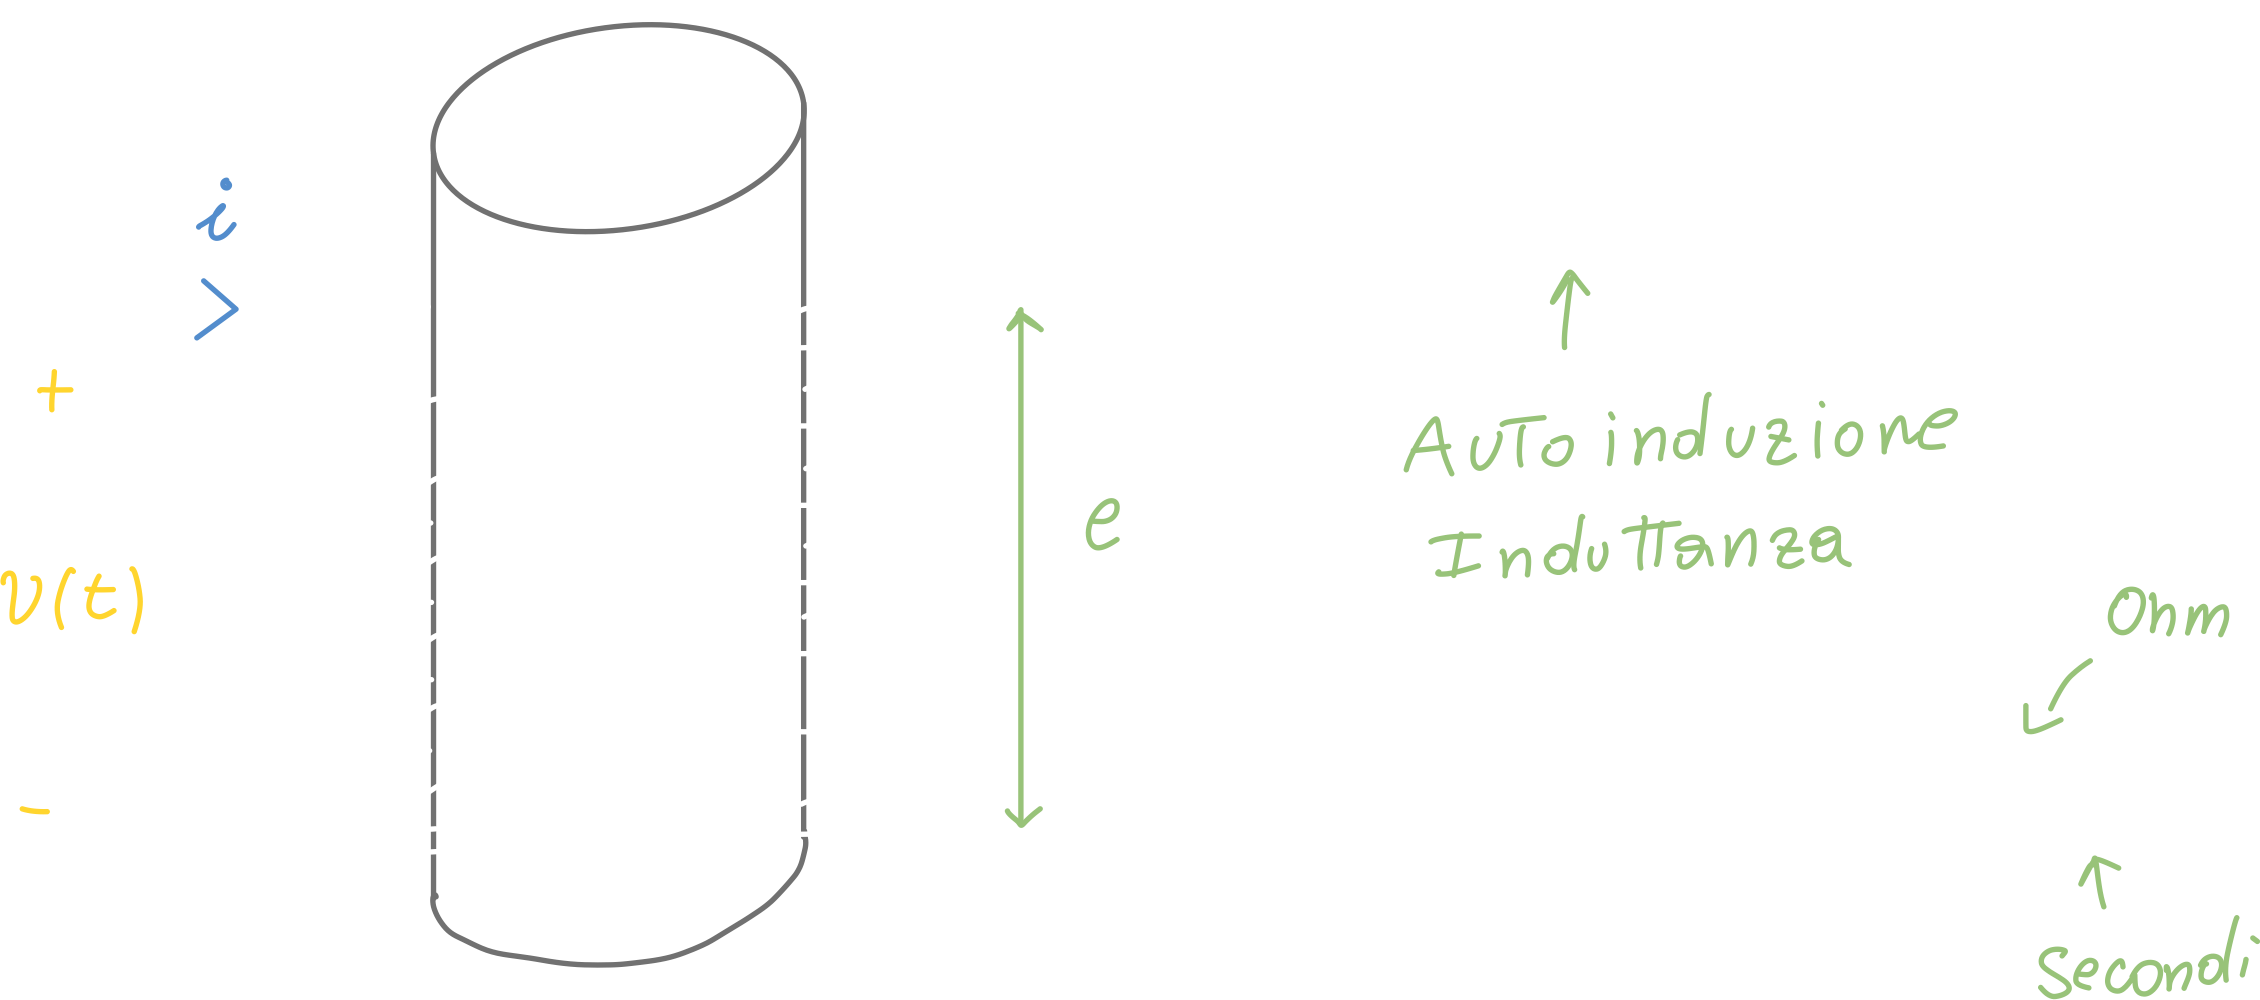 i
>
+
v(t)
-
e
Autoinduzione
Induttanza
Ohm
Secondi